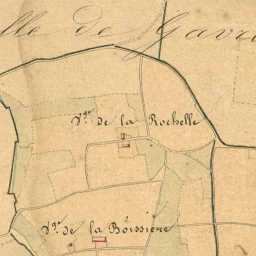 lle de Gavr
d.ne de la Rochelle
d.ne de la Boissière